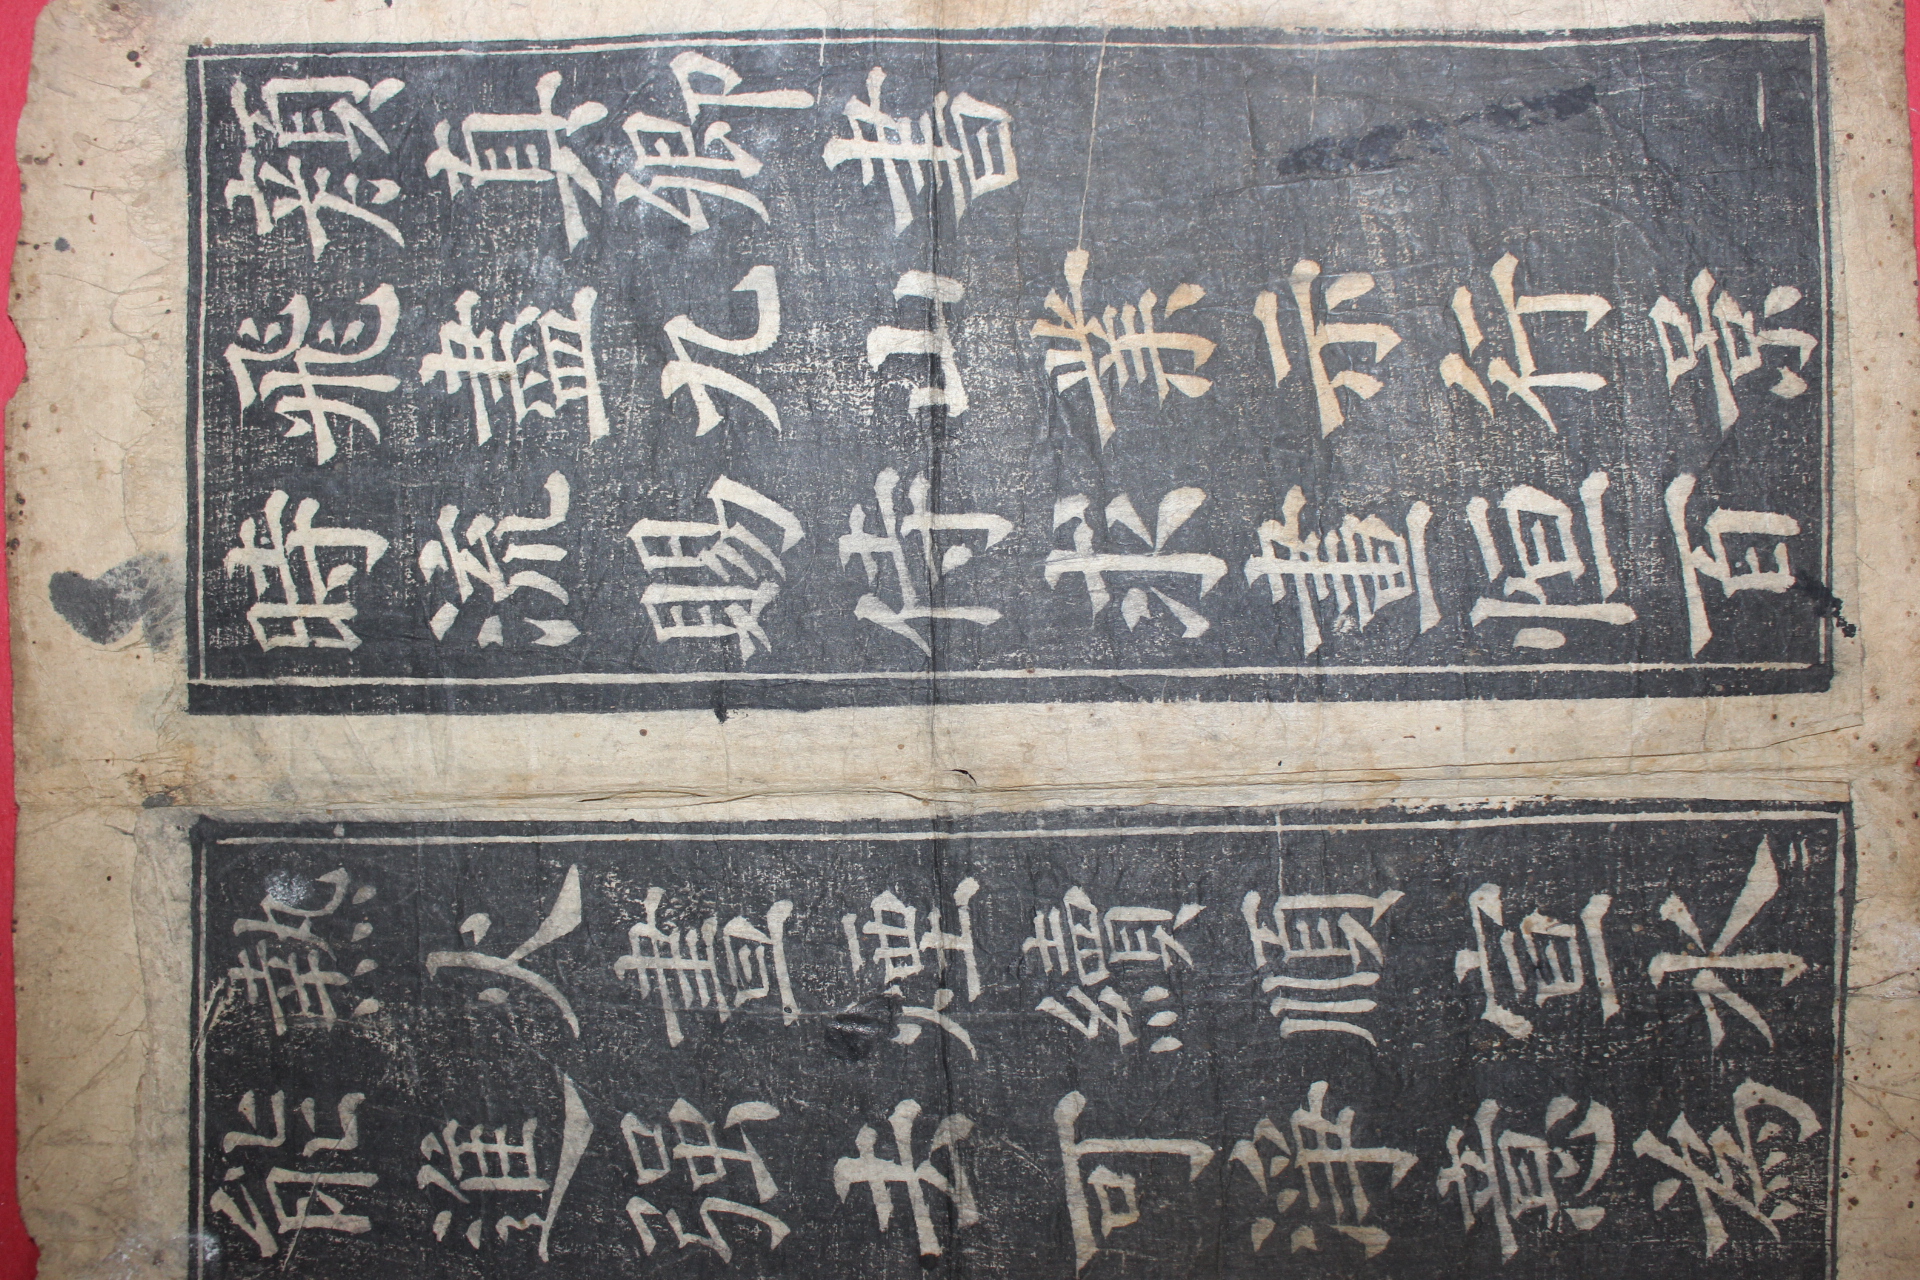 顔真卿書
一
飛盡九山業示行景
時流賜侍求畫恒百
熱火晝煙續順宣水
二
能進强去可淨意為